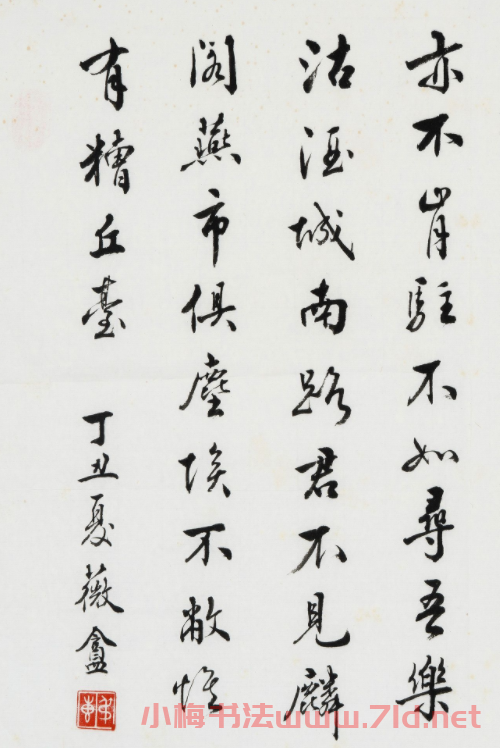 亦不肯駐不如尋吾樂
沽酒城南路君不見麟
閣燕市俱塵埃不敝惟
有糟丘臺
丁丑夏薇盦
小梅书法www.7ld.net